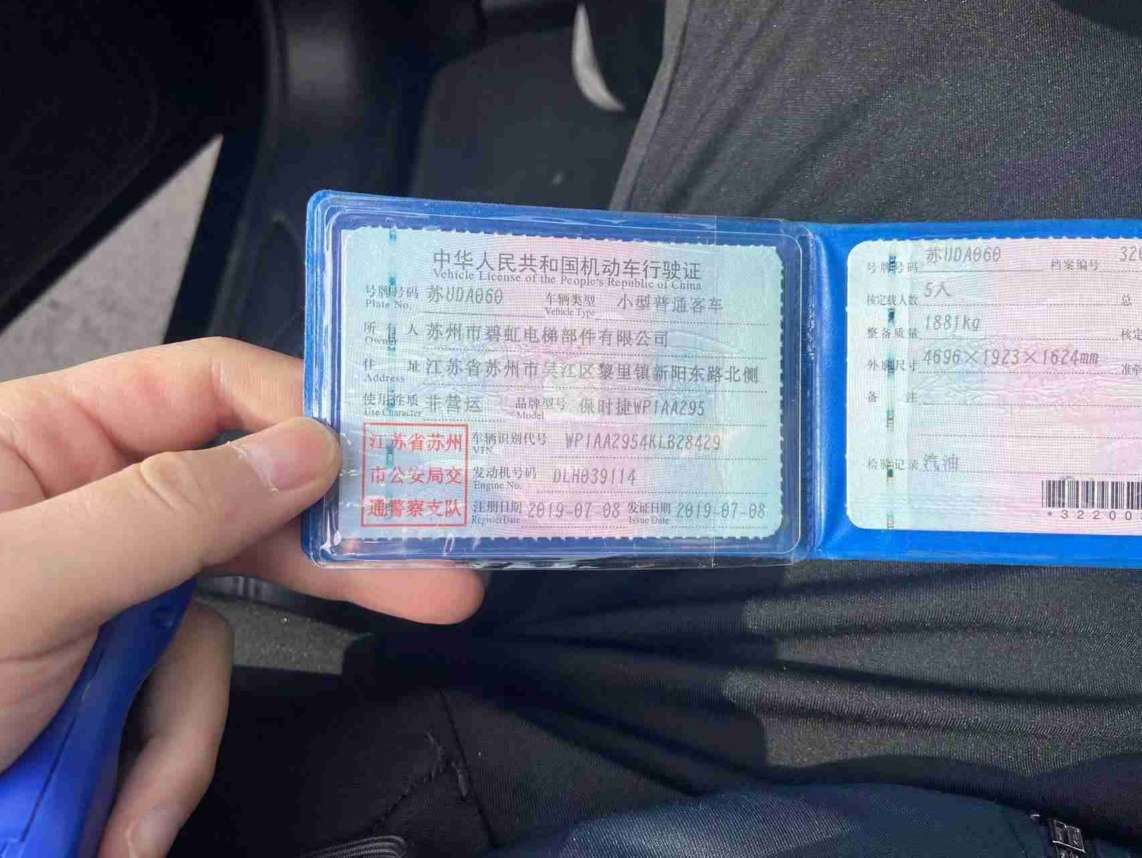 中华人民共和国机动车行驶证
Vehicle License of the People's Republic of China
号牌号码 苏UDA060 车辆类型 小型普通客车
Plate No. Vehicle Type
所有人 苏州市碧虹电梯部件有限公司
Owner
住址 江苏省苏州市吴江区黎里镇新阳东路北侧
Address
使用性质 非营运 品牌型号 保时捷WP1AA295
Use Character Model
江苏省苏州
市公安局交
通警察支队
车辆识别代号 WP1AA2954KLB28429
VIN
发动机号码 DLH039114
Engine No.
注册日期 2019-07-08 发证日期 2019-07-08
Register Date Issue Date
号牌号码 苏UDA060 档案编号 320
核定载人数 5人 总
整备质量 1881kg 核定
外廓尺寸 4696×1923×1624mm 准牵
备注
检验记录 汽油
*32200